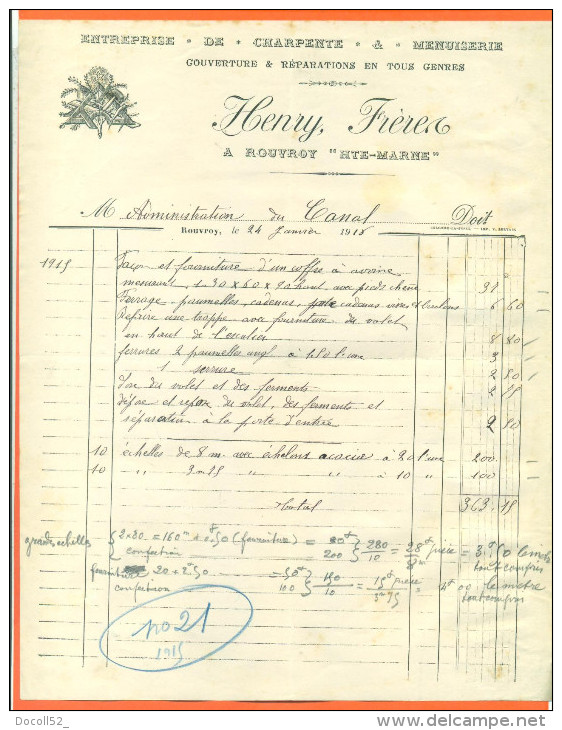 ENTREPRISE * DE * CHARPENTE * & * MENUISERIE
COUVERTURE & RÉPARATIONS EN TOUS GENRES
Henry, Frères
A ROUVROY "HTE-MARNE"
M Administration du Canal Doit
Rouvroy, le 24 Janvier 1915
1915 Façon et fourniture d'un coffre à avoine
mesurant 1.30 x 60 x 90 haut avec pieds chêne 32
Ferrage paumelles, cadenas, cadenas vises et boulons 6 60
Refaire une trappe avec fourniture du volet
en haut de l'escalier 8 80
ferrures 2 paumelles angl. à 1.50 l'une 3
1 serrure 2 80
du volet et des ferments 2 15
dépose et repose du volet, des ferments et
réparation à la porte d'entrée 2 80
10 échelles de 8 m. avec échelons acacia à 20 l'une 200
10 " 3 m 75 " " à 10 " 100
Total 363.15
grandes échelles 2 x 80 = 160 m à 0.50 (fourniture) = 80 f 280 = 28 f pièce = 3 f 50 le mètre
confection 200 10 8 m tout compris
fourniture 20 + 2 f 50 = 50 f 150 = 15 f pièce = 4 f 00 le mètre
confection 100 10 3 m 75 tout compris
no 21
1915
Docoll52_
www.delcampe.net